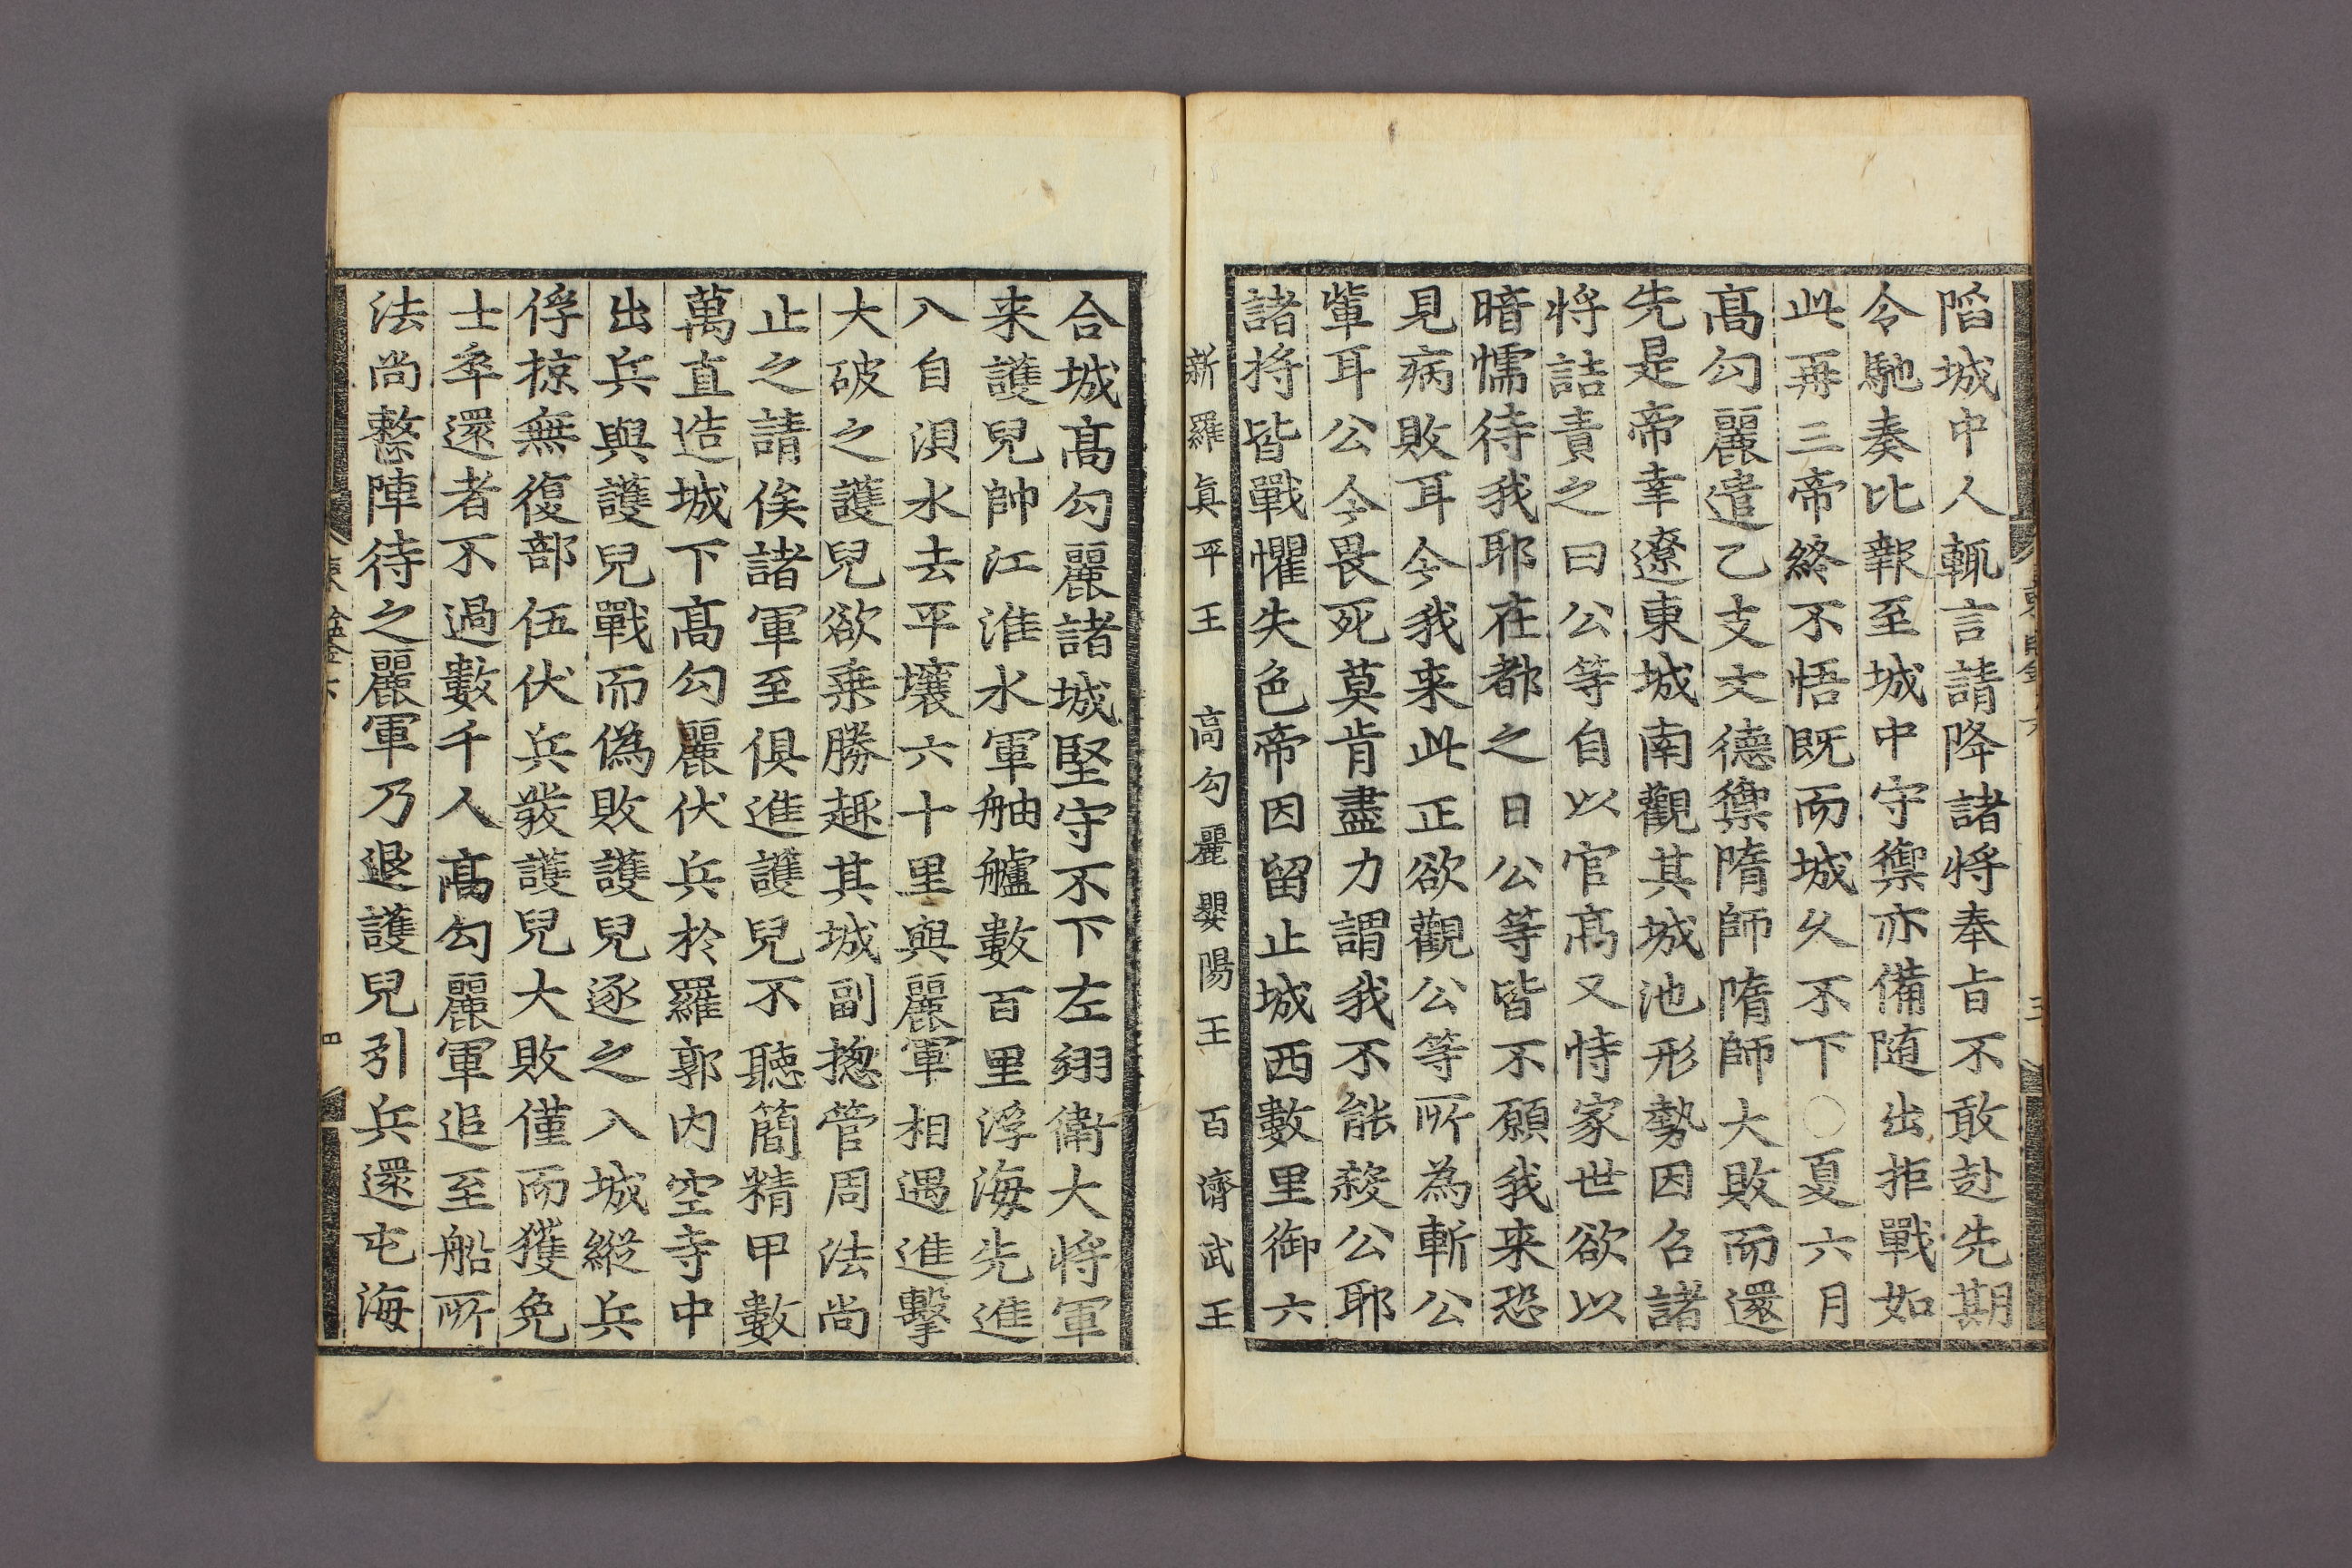 陷城中人輒言請降諸將奉旨不敢赴先期
令馳奏比報至城中守禦亦備随出拒戰如
此再三帝終不悟既而城久不下○夏六月
髙勾麗遣乙支文德禦隋師隋師大敗而還
先是帝幸遼東城南觀其城池形勢因召諸
將詰責之曰公等自以官髙又恃家世欲以
暗懦待我耶在都之日公等皆不願我来恐
見病敗耳今我来此正欲觀公等所為斬公
軰耳公今畏死莫肯盡力謂我不能殺公耶
諸将皆戰懼失色帝因留止城西數里御六
新羅眞平王 高勾麗嬰陽王 百濟武王
合城髙勾麗諸城堅守不下左翊衛大将軍
来護兒帥江淮水軍舳艫數百里浮海先進
入自浿水去平壤六十里與麗軍相遇進擊
大破之護兒欲乗勝趣其城副摠管周法尚
止之請俟諸軍至俱進護兒不聽簡精甲數
萬直造城下髙勾麗伏兵於羅郭內空寺中
出兵與護兒戰而偽敗護兒逐之入城縱兵
俘掠無復部伍伏兵發護兒大敗僅而獲免
士卒還者不過數千人髙勾麗軍追至船所
法尚整陣待之麗軍乃退護兒引兵還屯海